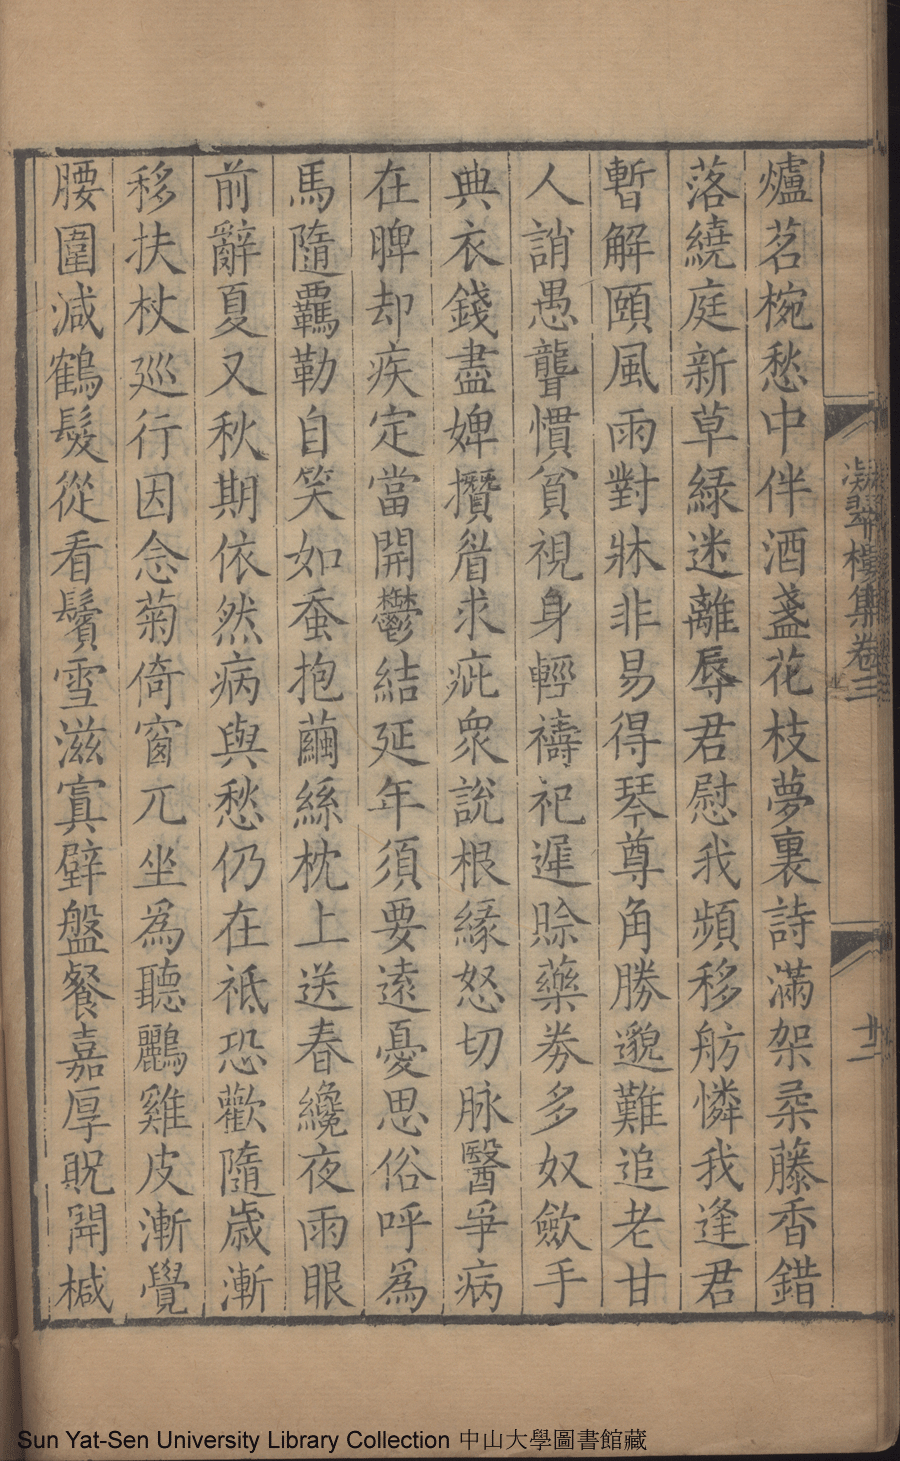 爐茗椀愁中伴酒盞花枝夢裏詩滿架桑藤香錯
落繞庭新草綠迷離辱君慰我頻移舫憐我逢君
暫解頤風雨對牀非易得琴尊角勝邈難追老甘
人誚愚聾慣貧視身輕禱祀遲賒藥券多奴歛手
典衣錢盡婢攢眉求疵衆說根緣怒切脉醫爭病
在脾却疾定當開鬱結延年須要遠憂思俗呼為
馬隨羈勒自笑如蚕抱繭絲枕上送春纔夜雨眼
前辭夏又秋期依然病與愁仍在祗恐歡隨歲漸
移扶杖廵行因念菊倚窗兀坐為聽鸝雞皮漸覺
腰圍減鶴髮從看鬢雪滋寘壁盤餐嘉厚貺開椷
凝翠樓集卷三
廿一
Sun Yat-Sen University Library Collection 中山大學圖書館藏